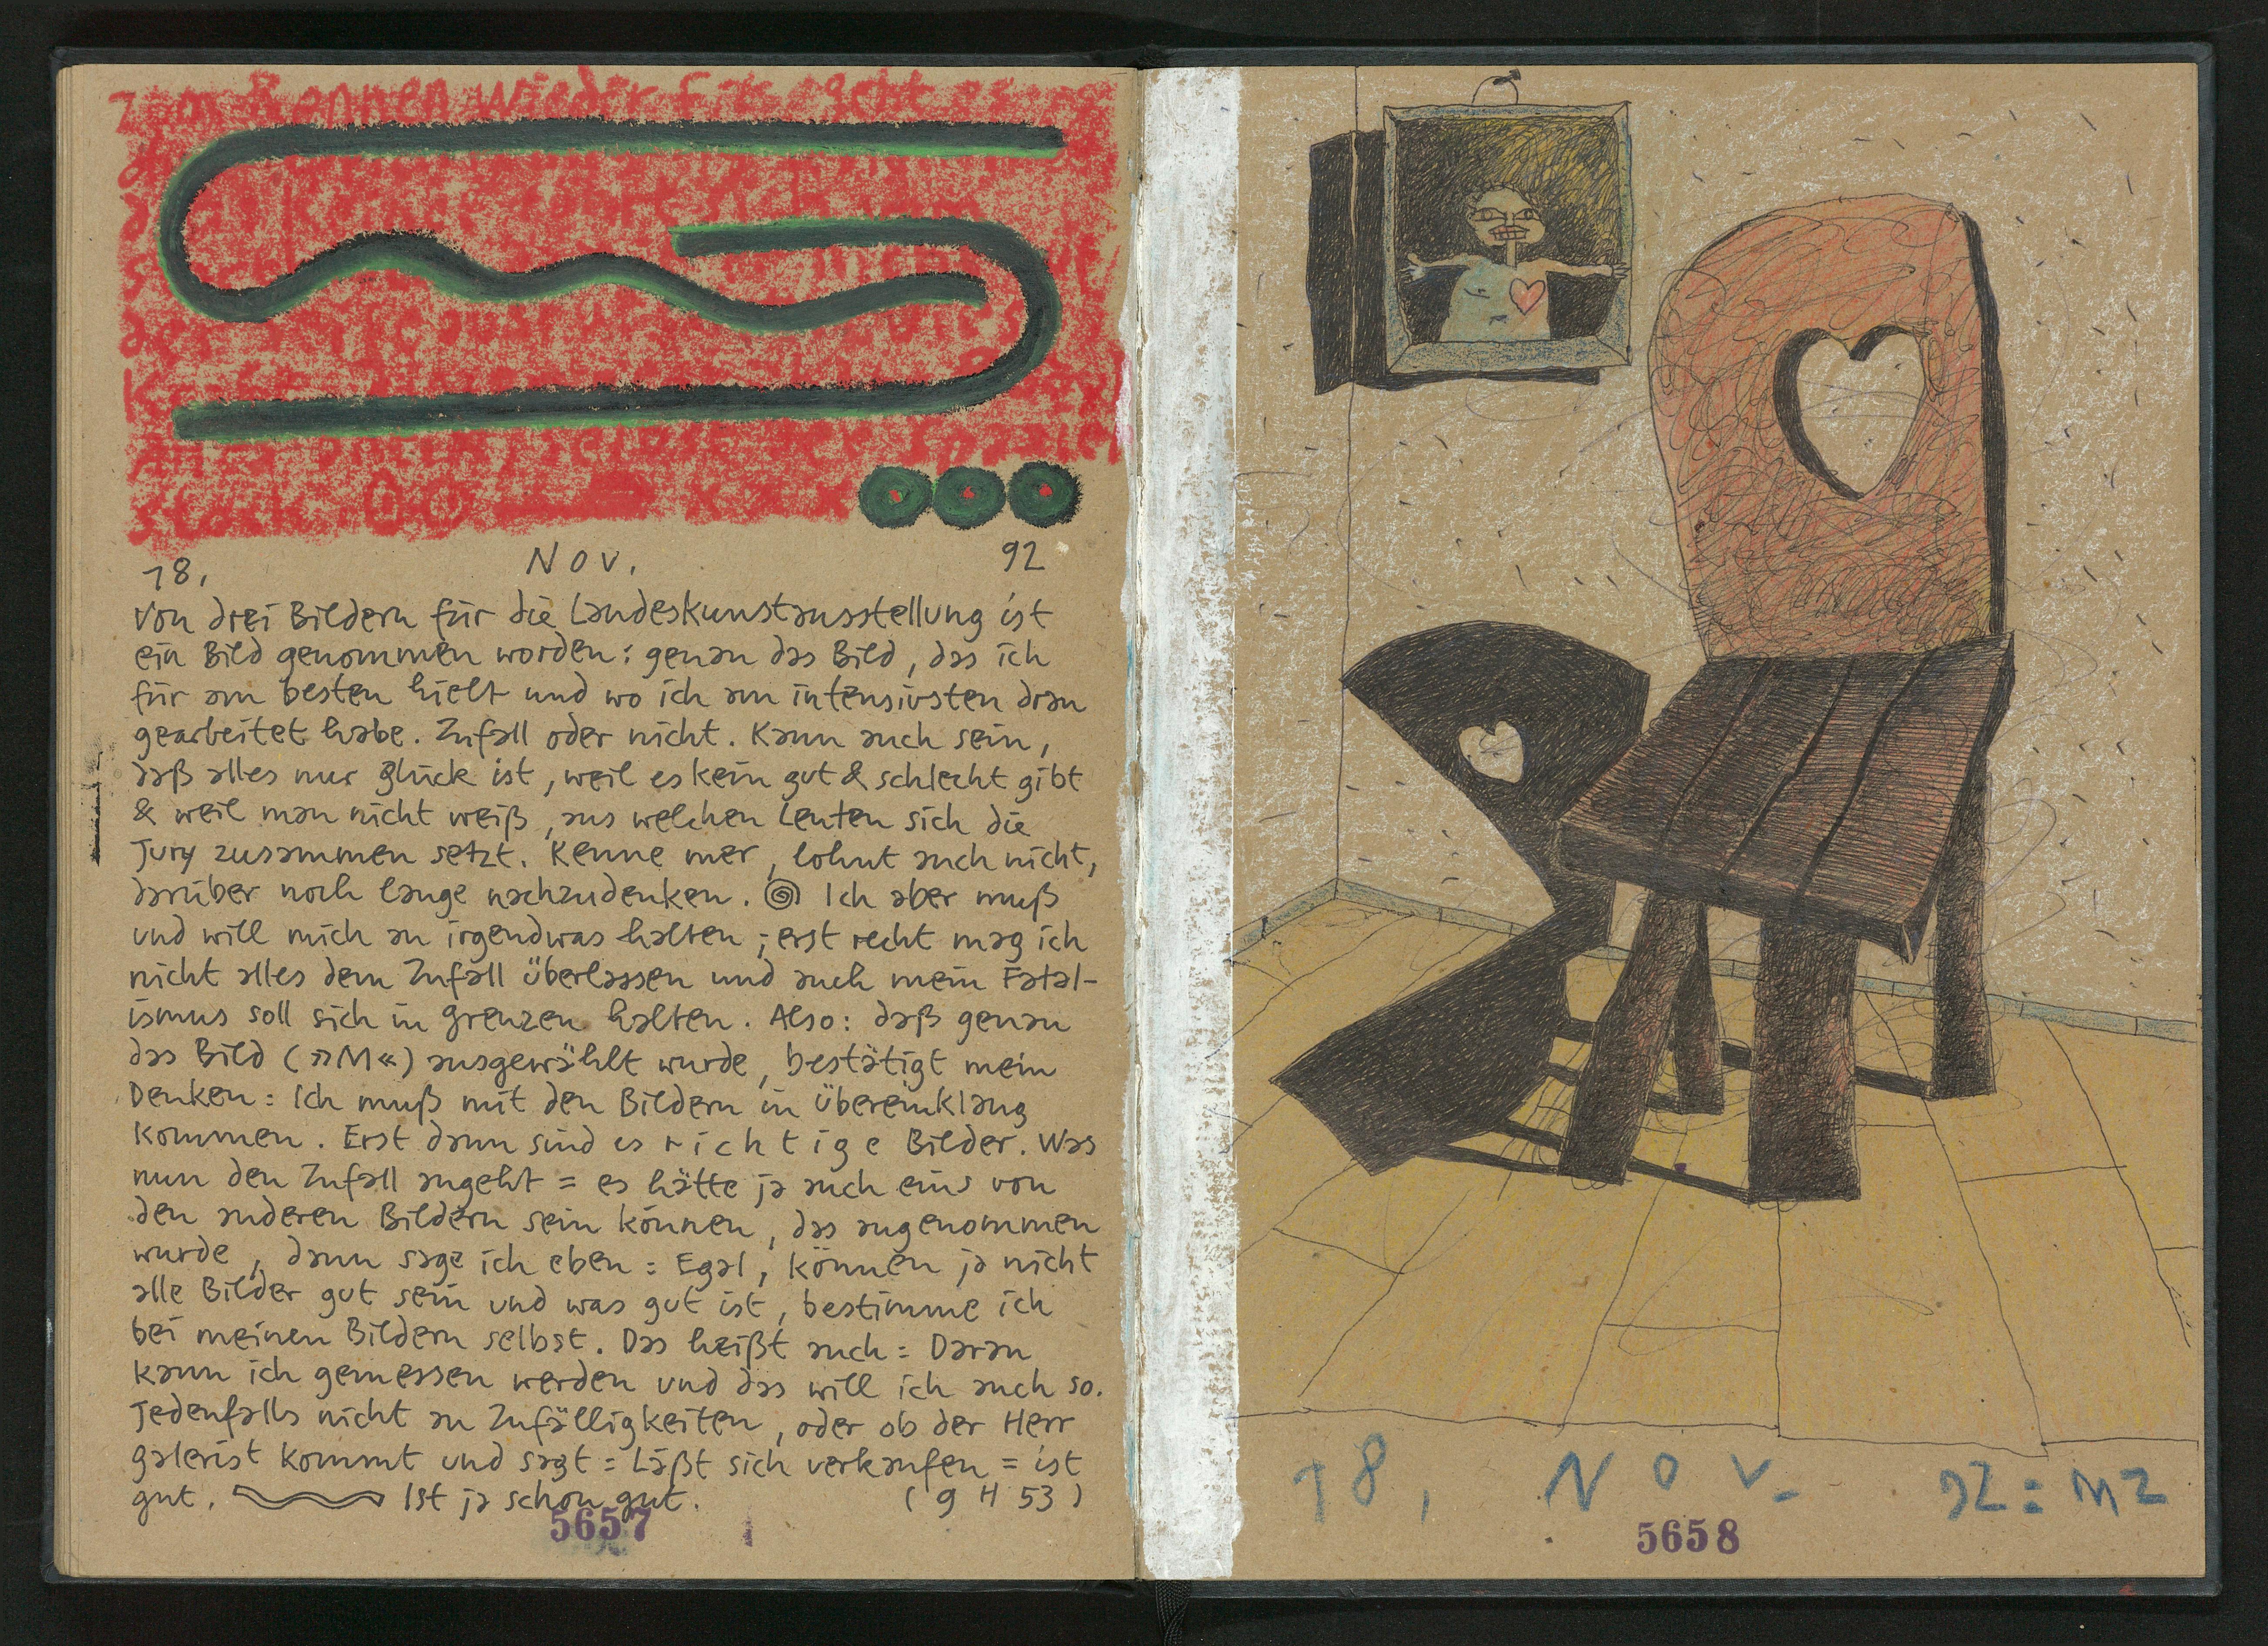 Rennen wieder
18. Nov. 92
Von drei Bildern für die Landeskunstausstellung ist
ein Bild genommen worden: genau das Bild, das ich
für am besten hielt und wo ich am intensivsten dran
gearbeitet habe. Zufall oder nicht. Kann auch sein,
daß alles nur Glück ist, weil es kein gut & schlecht gibt
& weil man nicht weiß, aus welchen Leuten sich die
Jury zusammen setzt. Kenne mer, lohnt auch nicht,
darüber noch lange nachzudenken. Ich aber muß
und will mich an irgendwas halten; erst recht mag ich
nicht alles dem Zufall überlassen und auch mein Fatal-
ismus soll sich in Grenzen halten. Also: daß genau
das Bild (»M«) ausgewählt wurde, bestätigt mein
Denken: Ich muß mit den Bildern in Übereinklang
kommen. Erst dann sind es r i c h t i g e Bilder. Was
nun den Zufall angeht = es hätte ja auch eins von
den anderen Bildern sein können, das angenommen
wurde, dann sage ich eben: Egal, können ja nicht
alle Bilder gut sein und was gut ist, bestimme ich
bei meinen Bildern selbst. Das heißt auch: Daran
kann ich gemessen werden und das will ich auch so.
Jedenfalls nicht an Zufälligkeiten, oder ob der Herr
Galerist kommt und sagt = Läßt sich verkaufen = ist
gut. Ist ja schon gut. (9 H 53)
5657
18. Nov.
5658